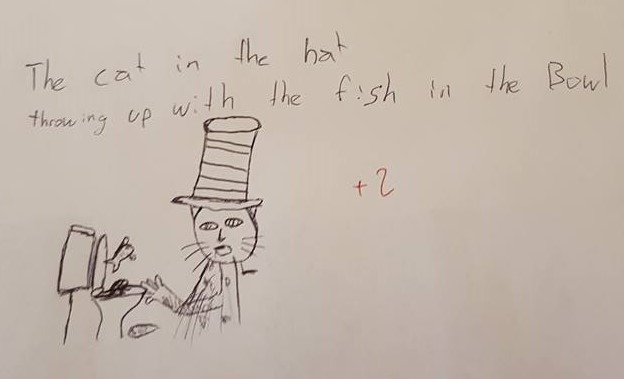 The cat in the hat
throwing up with the fish in the Bowl
+2